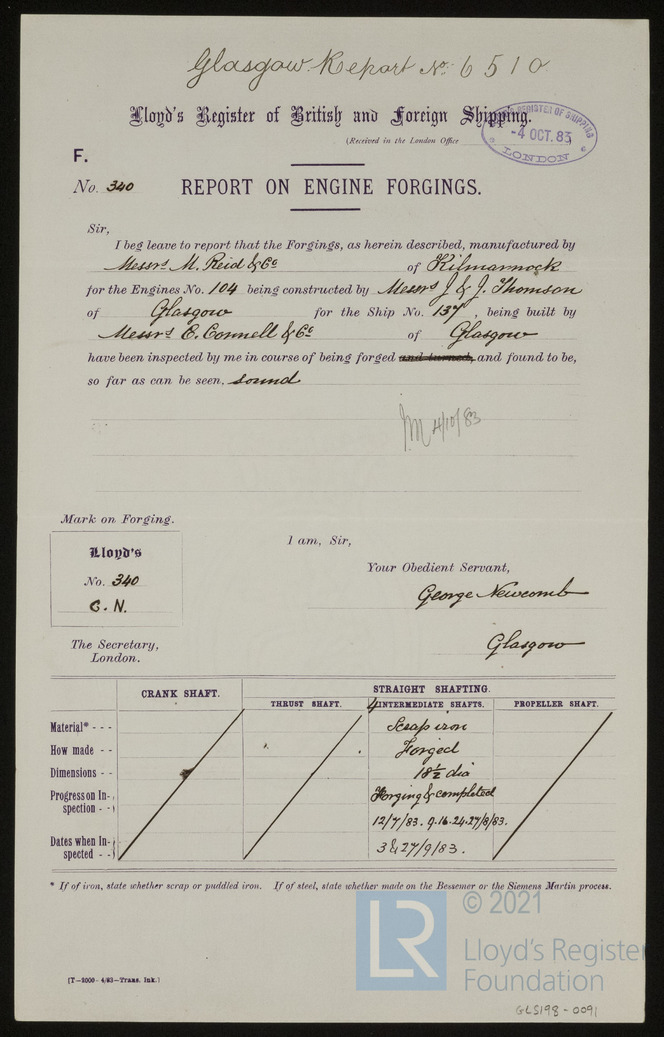 Glasgow Report No. 6510
Lloyd's Register of British and Foreign Shipping.
(Received in the London Office
LLOYD'S REGISTER OF SHIPPING
-4 OCT. 83
LONDON
F.
No. 340 REPORT ON ENGINE FORGINGS.
Sir,
I beg leave to report that the Forgings, as herein described, manufactured by
Messrs M. Reid & Co of Kilmarnock
for the Engines No. 104 being constructed by Messrs J & J. Thomson
of Glasgow for the Ship No. 137, being built by
Messrs E. Connell & Co of Glasgow
have been inspected by me in course of being forged and turned, and found to be,
so far as can be seen, sound
4/10/83
Mark on Forging.
Lloyd's
No. 340
G. N.
I am, Sir,
Your Obedient Servant,
George Newcomb
Glasgow
The Secretary,
London.
CRANK SHAFT. STRAIGHT SHAFTING.
THRUST SHAFT. 4 INTERMEDIATE SHAFTS. PROPELLER SHAFT.
Material* - - - Scrap iron
How made - - Forged
Dimensions - - 18½ dia
Progress on In- Forging & completed
spection - -
12/7/83. 9.16.24.27/8/83.
Dates when In-
spected - - 3 & 27/9/83.
* If of iron, state whether scrap or puddled iron. If of steel, state whether made on the Bessemer or the Siemens Martin process.
[T—2000—4/83—Trans. Ink.]
LR
© 2021
Lloyd's Register
Foundation
GLS198-0091